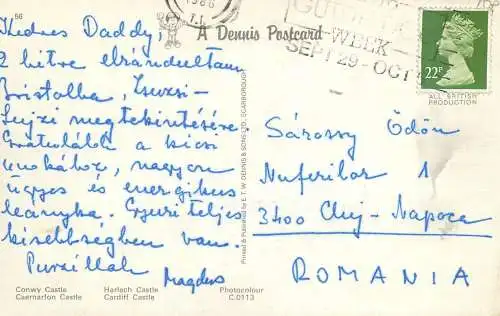 1986
T.L.
WEEK
SEPT 29-OCT
56
A Dennis Postcard
22P
ALL BRITISH
PRODUCTION
Kedves Daddy,
2 hétre elrándultam
Bristolba, Zsuzsi-
Lujzi megtekintésére.
Gratulálok a kicsi
unokához, nagyon
ügyes és energikus
leányka. Gyuri teljes
kisebbségben van.
Puszillak
Magdus
Printed & Published by E. T. W. DENNIS & SONS LTD., SCARBOROUGH
Sárossy Ödön
Nuferilor 1
3400 Cluj-Napoca
ROMANIA
Conwy Castle Harlech Castle Photocolour
Caernarfon Castle Cardiff Castle C.0113